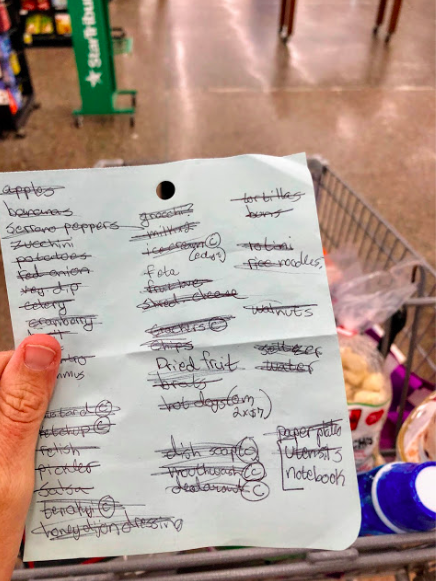 StarTribune
apples
bananas
serrano peppers
zucchini
potatoes
red onion
veg dip
celery
cranberry
mustard ©
ketchup ©
relish
pickles
salsa
teriaky ©
honey dijon dressing
gnocchi
milk
ice cream ©
feta
sliced cheese
crackers ©
chips
Dried fruit
brats
hot dogs (2m
2x$7)
dish soap ©
mouthwash ©
deodorant ©
tortillas
buns
rotini
rice noodles,
walnuts
seltzer
water
paper plates
utensils
notebook